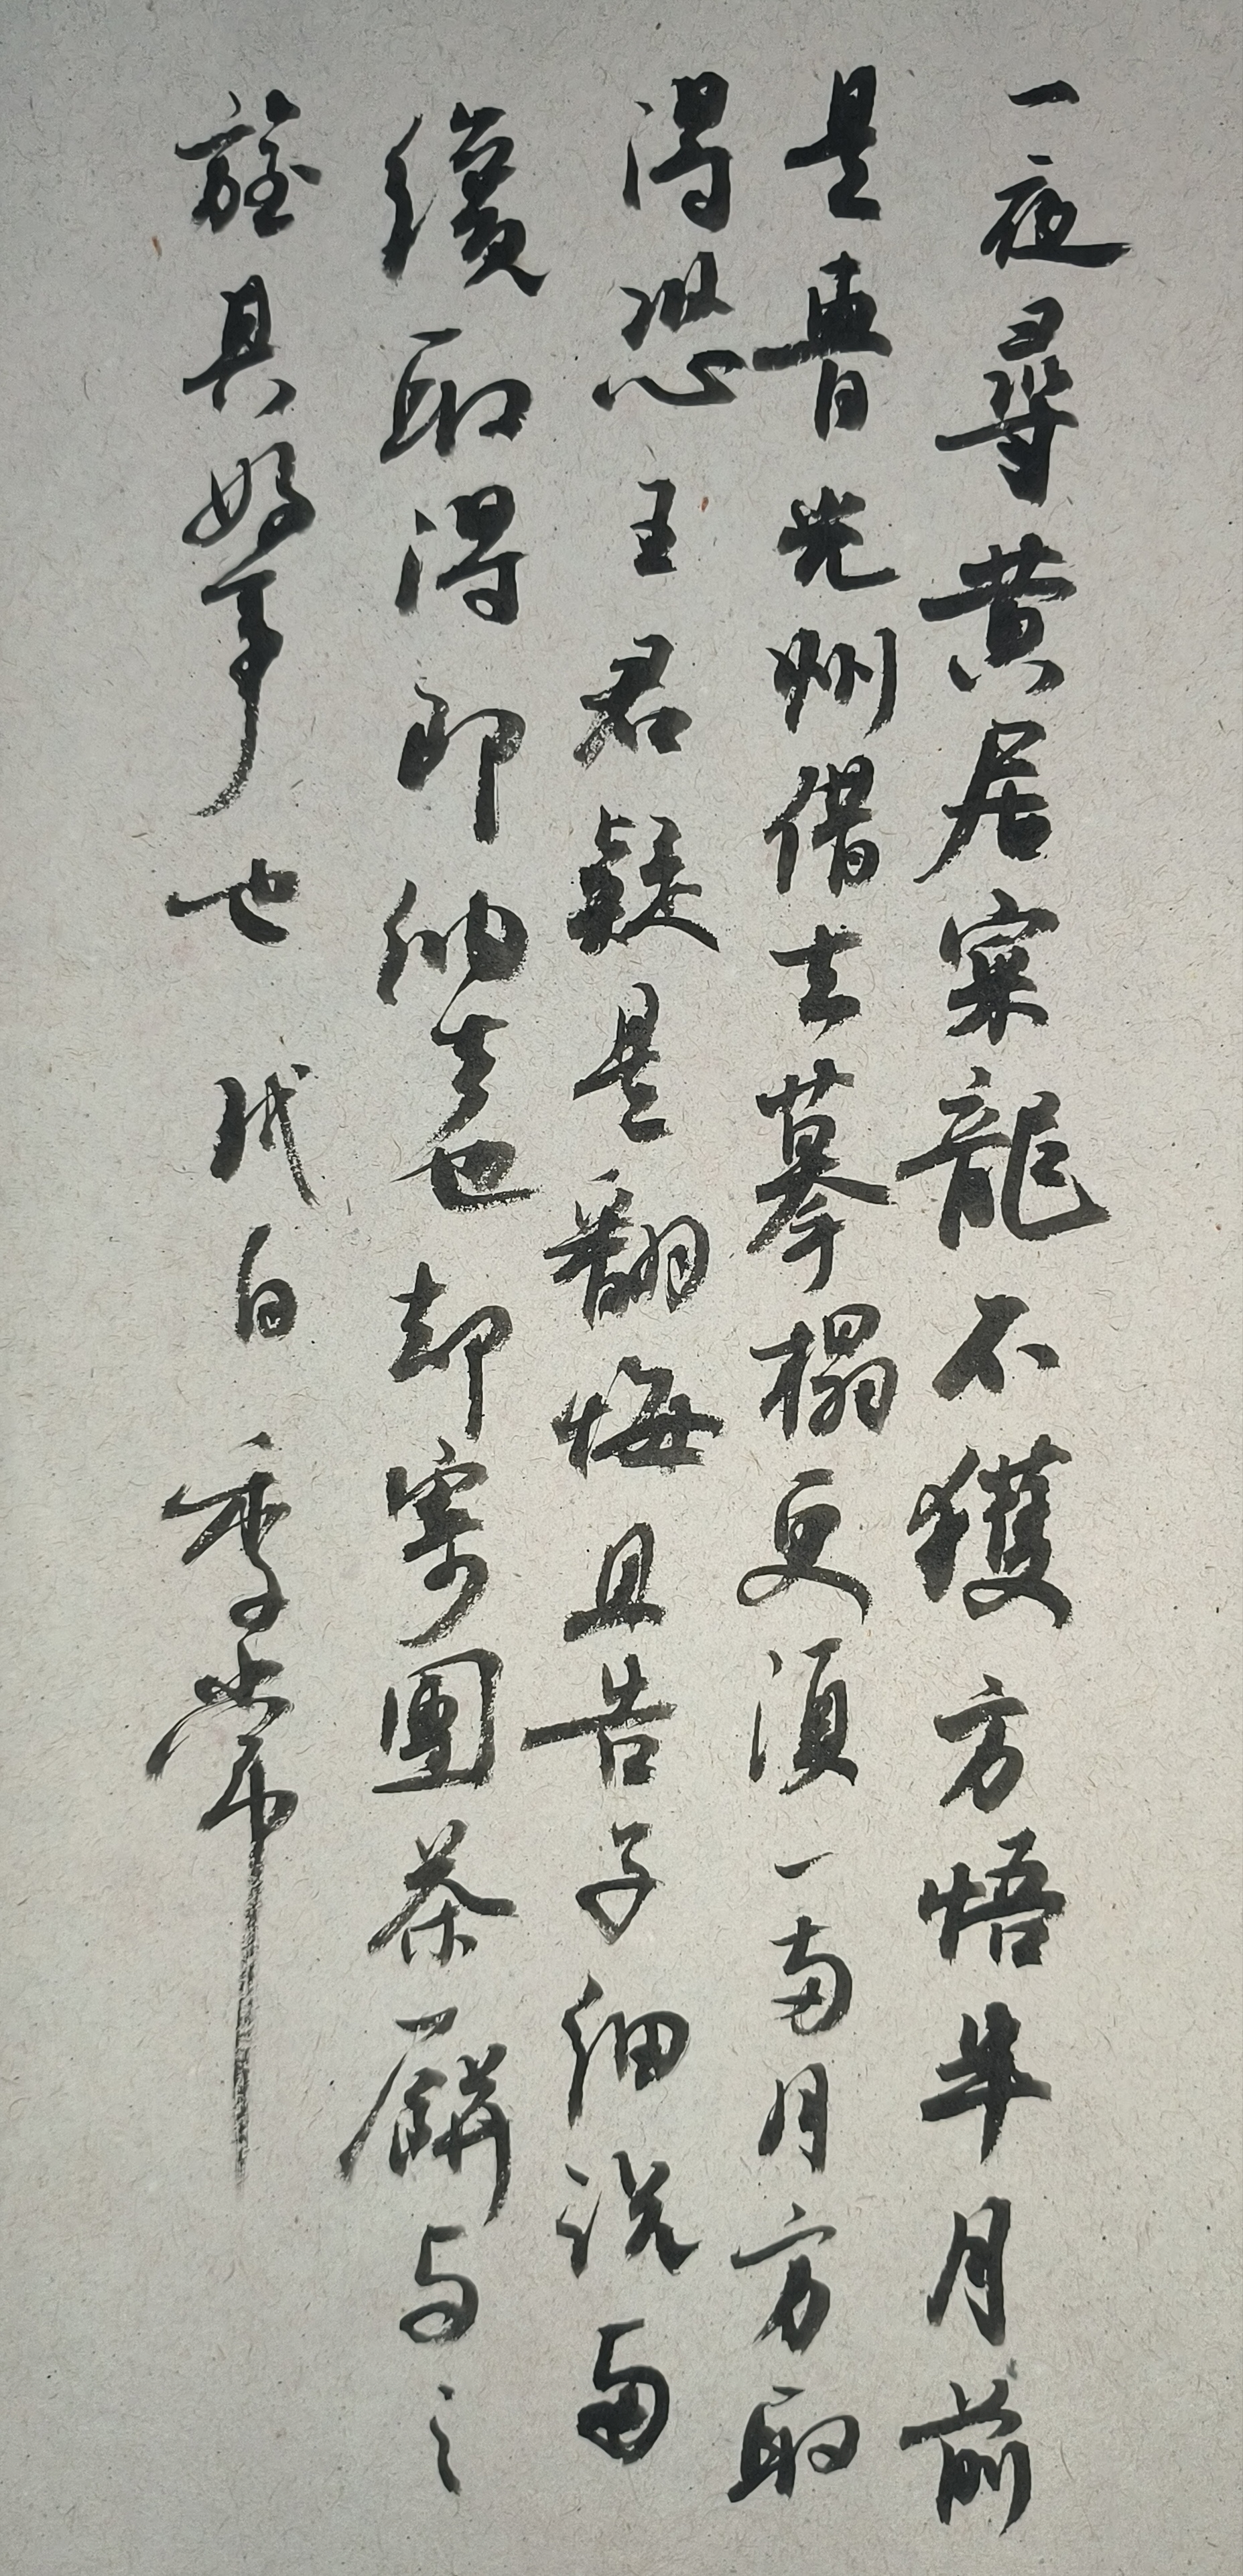 一夜尋黄居寀龍不獲方悟半月前
是曹光州借去摹搨更須一兩月方取
得恐王君疑是翻悔且告子細説與
纔取得即納去也却寄團茶一餅與之
旌其好事也代白季常